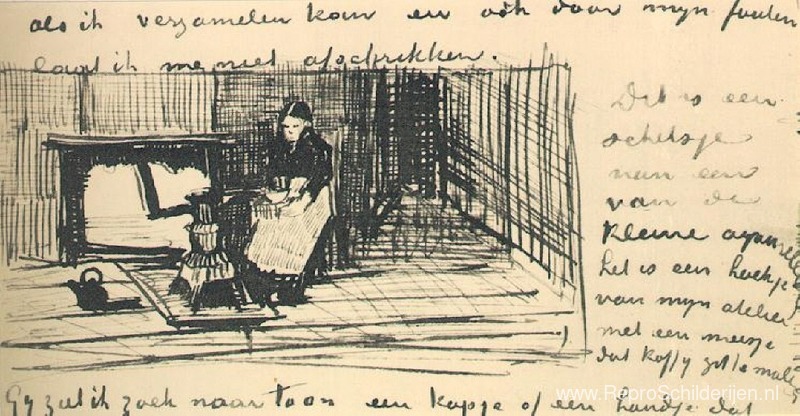 als ik verzamelen kan en ook door mijn fouten
laat ik me niet afschrikken.
Dit is een
schetsje
van een
van de
kleine aquarellen
het is een hoekje
van mijn atelier
met een meisje
dat koffy zit te malen
Gy zult ik zoek naar toon een kopje of een handje dat
www.ReproSchilderijen.nl